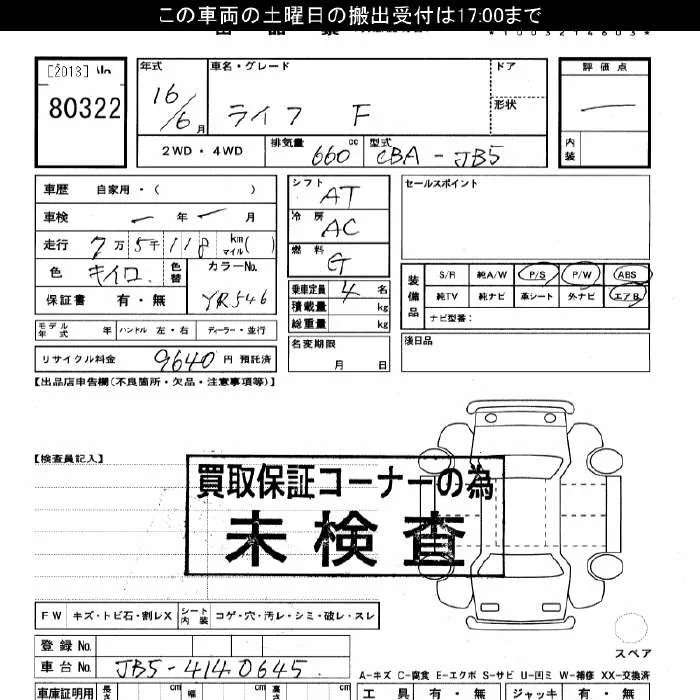 この車両の土曜日の搬出受付は17:00まで
*1003214603*
[2013] No
80322
年式 車名・グレード ドア 評価点
16/6月 ライフ F 形状 —
2WD・4WD 排気量 660cc 型式 CBA-JB5 内装
車歴 自家用・( ) シフト AT セールスポイント
車検 — 年 — 月 冷房 AC
走行 7万5千118 km マイル( ) 燃料 G
色 キイロ 色替 カラーNo. YR546
保証書 有・無
乗車定員 4 名
積載量 kg
総重量 kg
装備品 S/R 純A/W P/S P/W ABS
純TV 純ナビ 革シート 外ナビ エアB
ナビ型番:
モデル年式 年 ハンドル 左・右 ディーラー・並行
名変期限 月 日
リサイクル料金 9640 円 預託済
【出品店申告欄(不良箇所・欠品・注意事項等)】
【検査員記入】
買取保証コーナーの為
未検査
FW キズ・トビ石・割レX シート内装 コゲ・穴・汚レ・シミ・破レ・スレ
スペア
登録No.
車台No. JB5-4140645
A-キズ C-腐食 E-エクボ S-サビ U-凹ミ W-補修 XX-交換済
車庫証明用 長さ cm 幅 cm 高さ cm 工具 有・無 ジャッキ 有・無